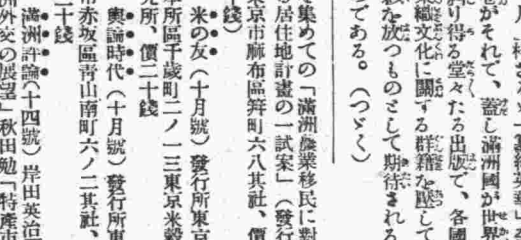 卷がそれで、蓋し滿洲國が世界
誇り得る堂々たる出版で、各國
織文化に關する群籍を壓して
を放つものとして期待される
である。（つゞく）
を集めての「滿洲農業移民に對
居住地計畫の一試案」（發行
東京市麻布區笄町六八其社、價
錢）
米の友（十月號）發行所東京
本所區千歲町二ノ一三東京米穀
究所、價二十錢
輿論時代（十月號）發行所東
市赤坂區青山南町六ノ二其社、
二十錢
滿洲評論（十四號）岸田英治
洲外交の展望」秋田勉「特產市